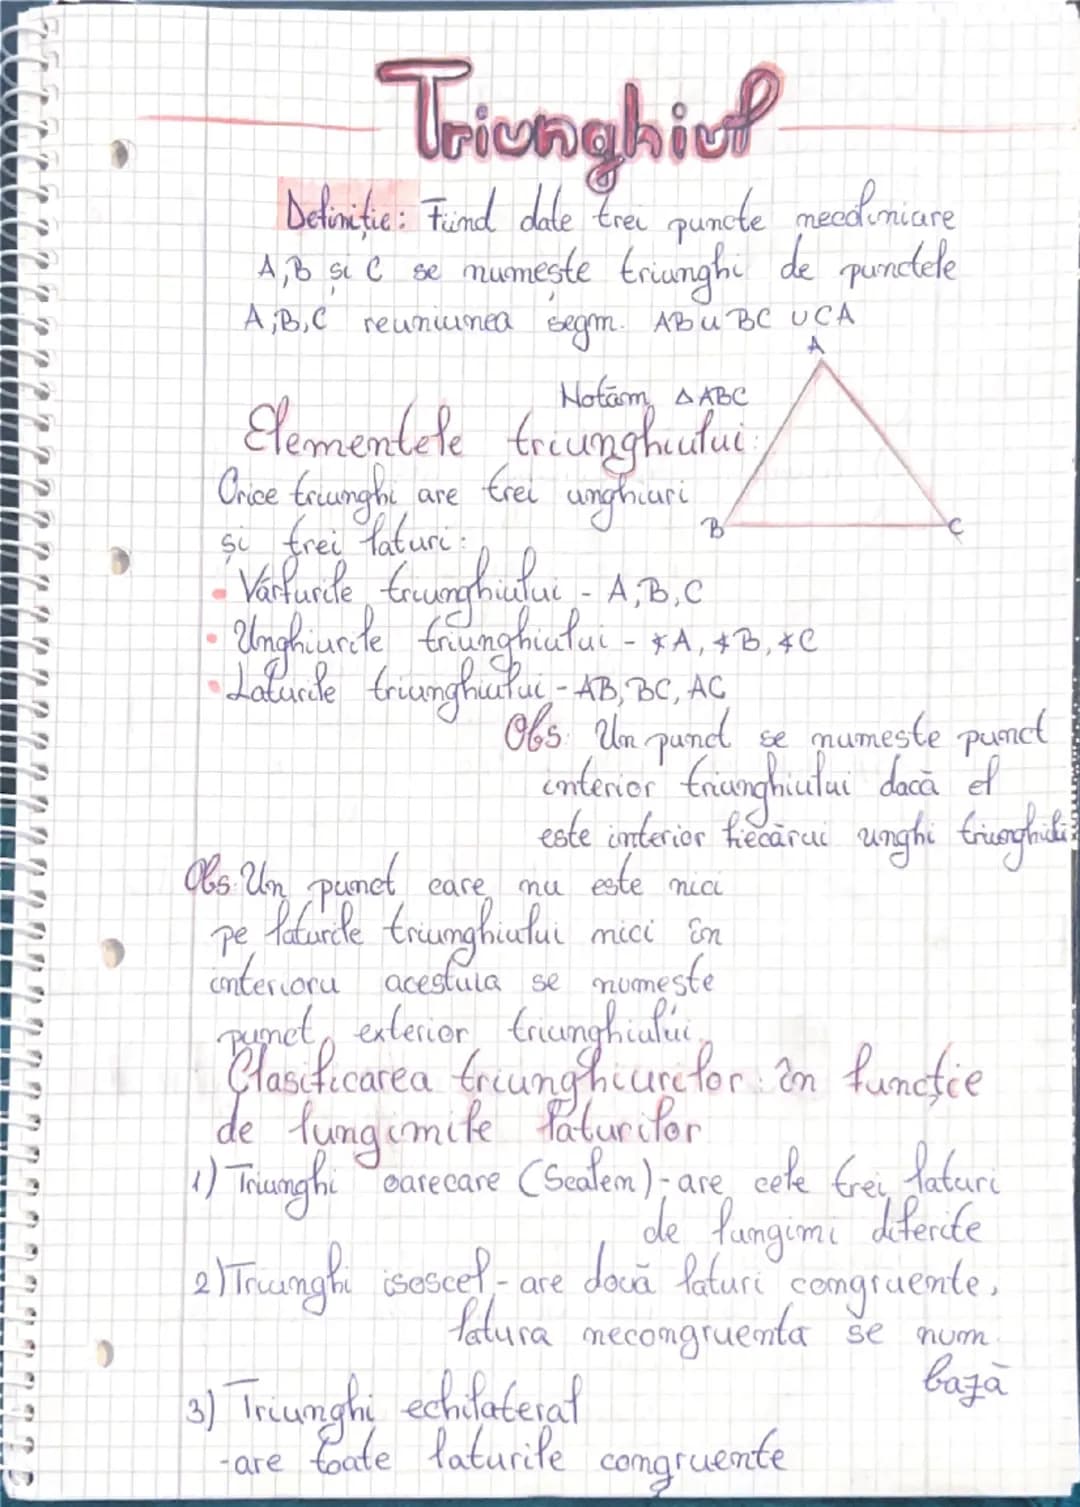 Triunghiul
Definiție: Fiind date trei puncte necoliniare
A,B și C se numește triunghi de punctele
A,B,C reuniunea segm. AB∪BC∪CA
A
Notăm △ABC
Elementele triunghiului:
Orice triunghi are trei unghiuri
B
C
și trei laturi:
• Vârfurile triunghiului - A,B,C
• Unghiurile triunghiului - ∢A, ∢B, ∢C
• Laturile triunghiului - AB, BC, AC
Obs: Un punct se numește punct
interior triunghiului dacă el
este interior fiecărui unghi
Obs: Un punct care nu este nici
pe laturile triunghiului nici în
interioru acestuia se numește
punct exterior triunghiului.
Clasificarea triunghiurilor în funcție
de lungimile laturilor
1) Triunghi oarecare (Scalen) - are cele trei laturi
de lungimi diferite
2) Triunghi isoscel - are două laturi congruente,
latura necongruenta se num.
bază
3) Triunghi echilateral
- are toate laturile congruente